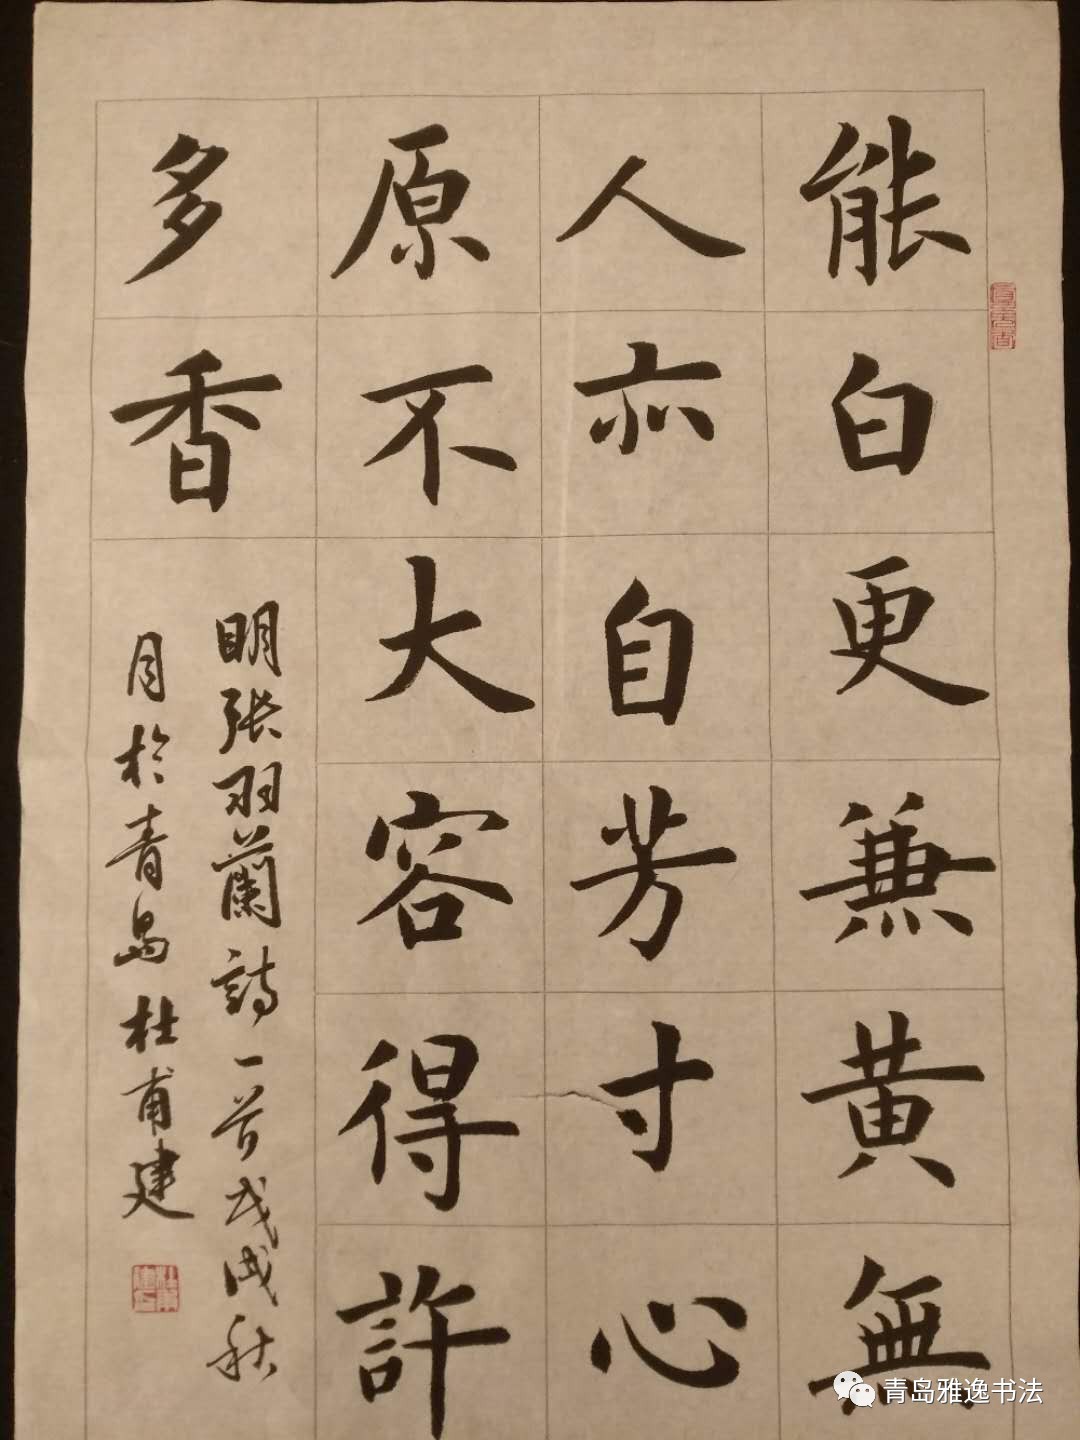 能白更兼黄無
人亦自芳寸心
原不大容得許
多香
明張羽蘭詩一首戊戌秋
月於青島杜甫建
青岛雅逸书法